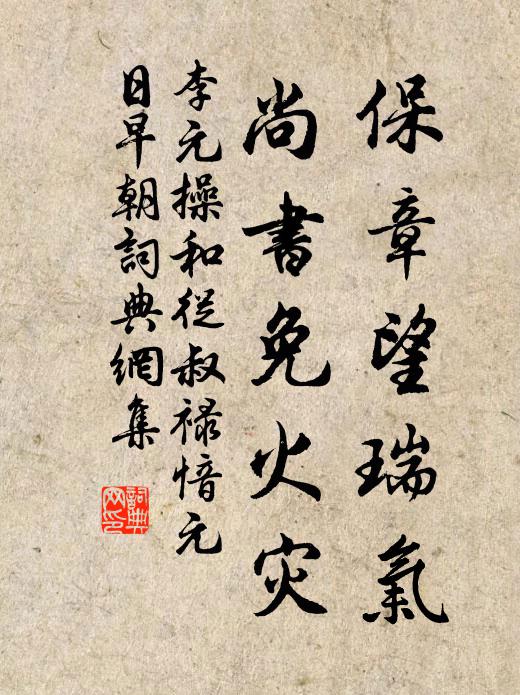 保章望瑞氣
尚書免火灾
李元操和從叔祿愔元
日早朝詞典網集
詞典网印